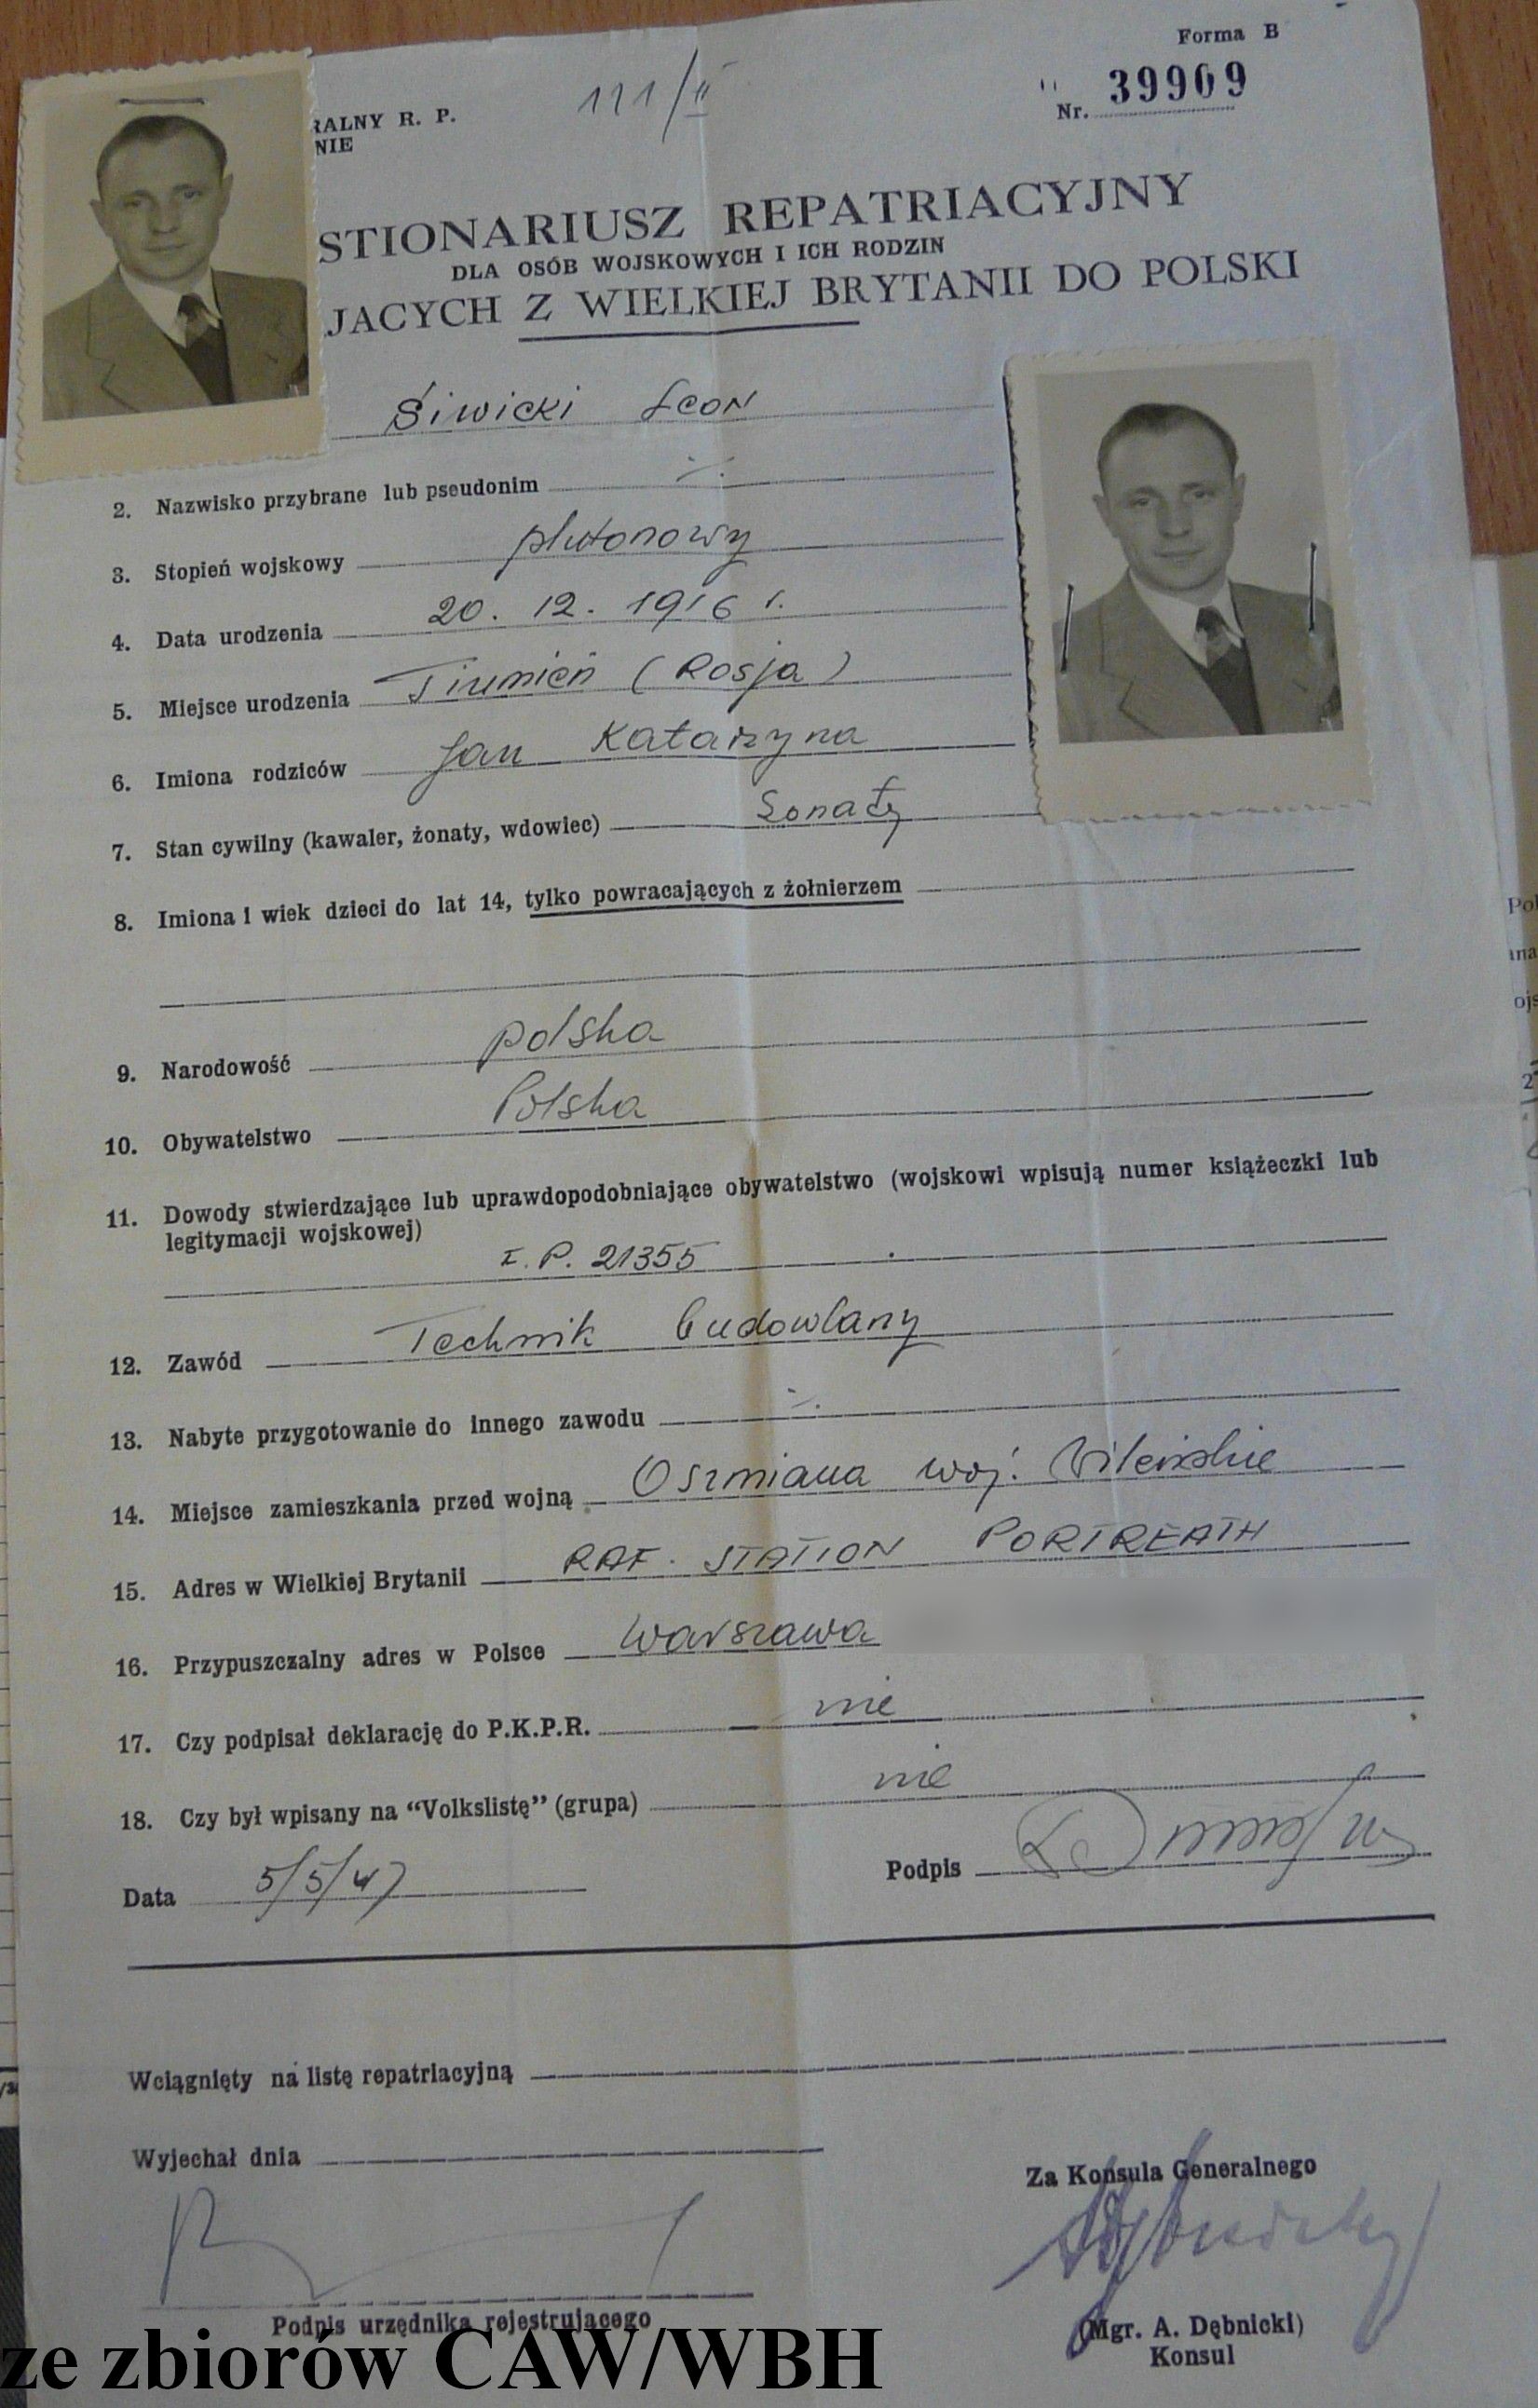 Forma B
RALNY R. P.
111/II
Nr. 39909
NIE
STIONARIUSZ REPATRIACYJNY
DLA OSÓB WOJSKOWYCH I ICH RODZIN
JACYCH Z WIELKIEJ BRYTANII DO POLSKI
Siwicki Leon
2. Nazwisko przybrane lub pseudonim ·/.
3. Stopień wojskowy plutonowy
4. Data urodzenia 20. 12. 1916 r.
5. Miejsce urodzenia Tiumień (Rosja)
6. Imiona rodziców Jan Katarzyna
7. Stan cywilny (kawaler, żonaty, wdowiec) żonaty
8. Imiona i wiek dzieci do lat 14, tylko powracających z żołnierzem
9. Narodowość polska
10. Obywatelstwo Polska
11. Dowody stwierdzające lub uprawdopodobniające obywatelstwo (wojskowi wpisują numer książeczki lub
legitymacji wojskowej)
I. P. 21355
12. Zawód Technik budowlany
13. Nabyte przygotowanie do innego zawodu ·/.
14. Miejsce zamieszkania przed wojną Oszmiana woj. Wileńskie
15. Adres w Wielkiej Brytanii RAF. STATION PORTREATH
16. Przypuszczalny adres w Polsce Warszawa
17. Czy podpisał deklarację do P.K.P.R. nie
18. Czy był wpisany na “Volkslistę” (grupa) nie
Data 5/5/47
Podpis
Wciągnięty na listę repatriacyjną
Wyjechał dnia
Za Konsula Generalnego
Podpis urzędnika rejestrującego
(Mgr. A. Dębnicki)
Konsul
ze zbiorów CAW/WBH